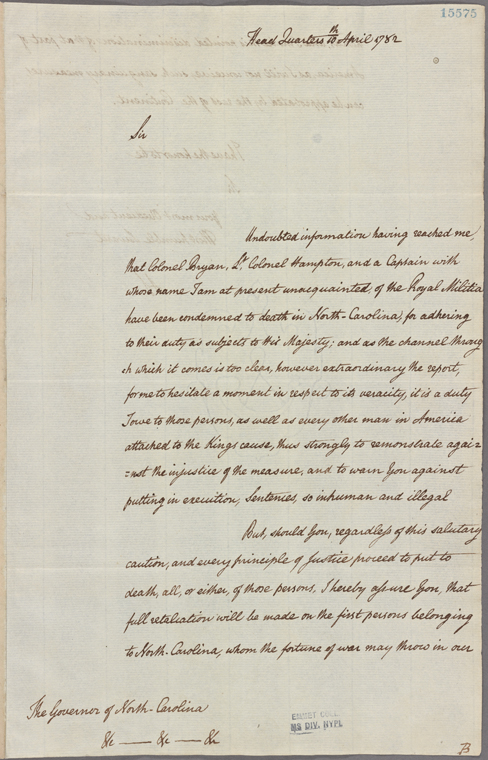 15575
Head Quarters 10th April 1782
Sir
Undoubted information having reached me,
that Colonel Bryan, Lt Colonel Hampton, and a Captain with
whose name I am at present unacquainted of the Royal Militia
have been condemned to death in North-Carolina, for adhering
to their duty as subjects to His Majesty; and as the channel throug
h which it comes is too clear, however extraordinary the report,
for me to hesitate a moment in respect to its veracity, it is a duty
I owe to those persons, as well as every other man in America
attached to the Kings cause, thus strongly to remonstrate agai=
=nst the injustice of the measure, and to warn You against
putting in execution, Sentences, so inhuman and illegal
But, should You, regardless of this salutary
caution, and every principle of Justice proceed to put to
death, all, or either, of those persons, I hereby assure You, that
full retaliation will be made on the first persons belonging
to North-Carolina, whom the fortune of war may throw in our
The Governor of North-Carolina
&c — &c — &c
EMMET COLL.
MS DIV. NYPL